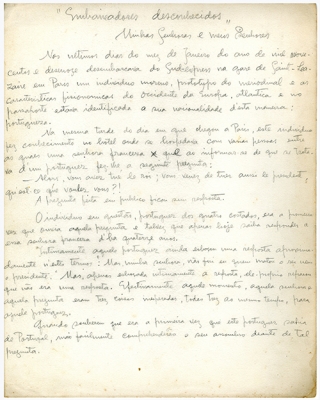 "Embaixadores desconhecidos"
Minhas Senhoras e meus Senhores
Nos ultimos dias do mez de Janeiro do ano de mil nove-
centos e dezanove desembarcava do Sud-Express na gare de Saint-La-
zare em Paris um individuo moreno, prototipo do meridional e as
caracteristicas fisionomicas do Ocidente da Europa, atlantica e no
passaporte estava identificada a sua nacionalidade d'esta maneira:
portuguesa.
Na mesma tarde do dia em que chegou a Paris, este individuo
fez conhecimento no hotel onde se hospedara com varias pessoas entre
as quaes uma senhora francesa a qual ao informar-se de que se trata-
va d'um portuguez fez-lhe a seguinte pergunta:
— Alors, vous avez tué le roi; vous venez de tuer aussi le president;
qu'est-ce que voulez vous?!
A pergunta feita em publico ficou sem resposta.
O individuo em questão, portuguez dos quatro costados, era a primeira
vez que ouvia aquela pergunta e talvez que apenas hoje saiba responder a
essa senhora francesa d'ha quatorze anos.
aquele portuguez ainda esboçou uma resposta aproxima-
damente n'estes termos: Mas minha senhora, não fui eu quem matou o rei nem
o presidente. Mas, apenas esboçada a resposta, ele proprio reparou
que não era uma resposta. Efectivamente aquele momento, aquela senhora e
aquela pergunta eram tres coisas inesperadas, todas tres ao mesmo tempo, para
aquele portuguez.
Quando souberem que era a primeira vez que este portuguez sahia
de Portugal, mais facilmente compreenderão o seu assombro deante de tal
pergunta.